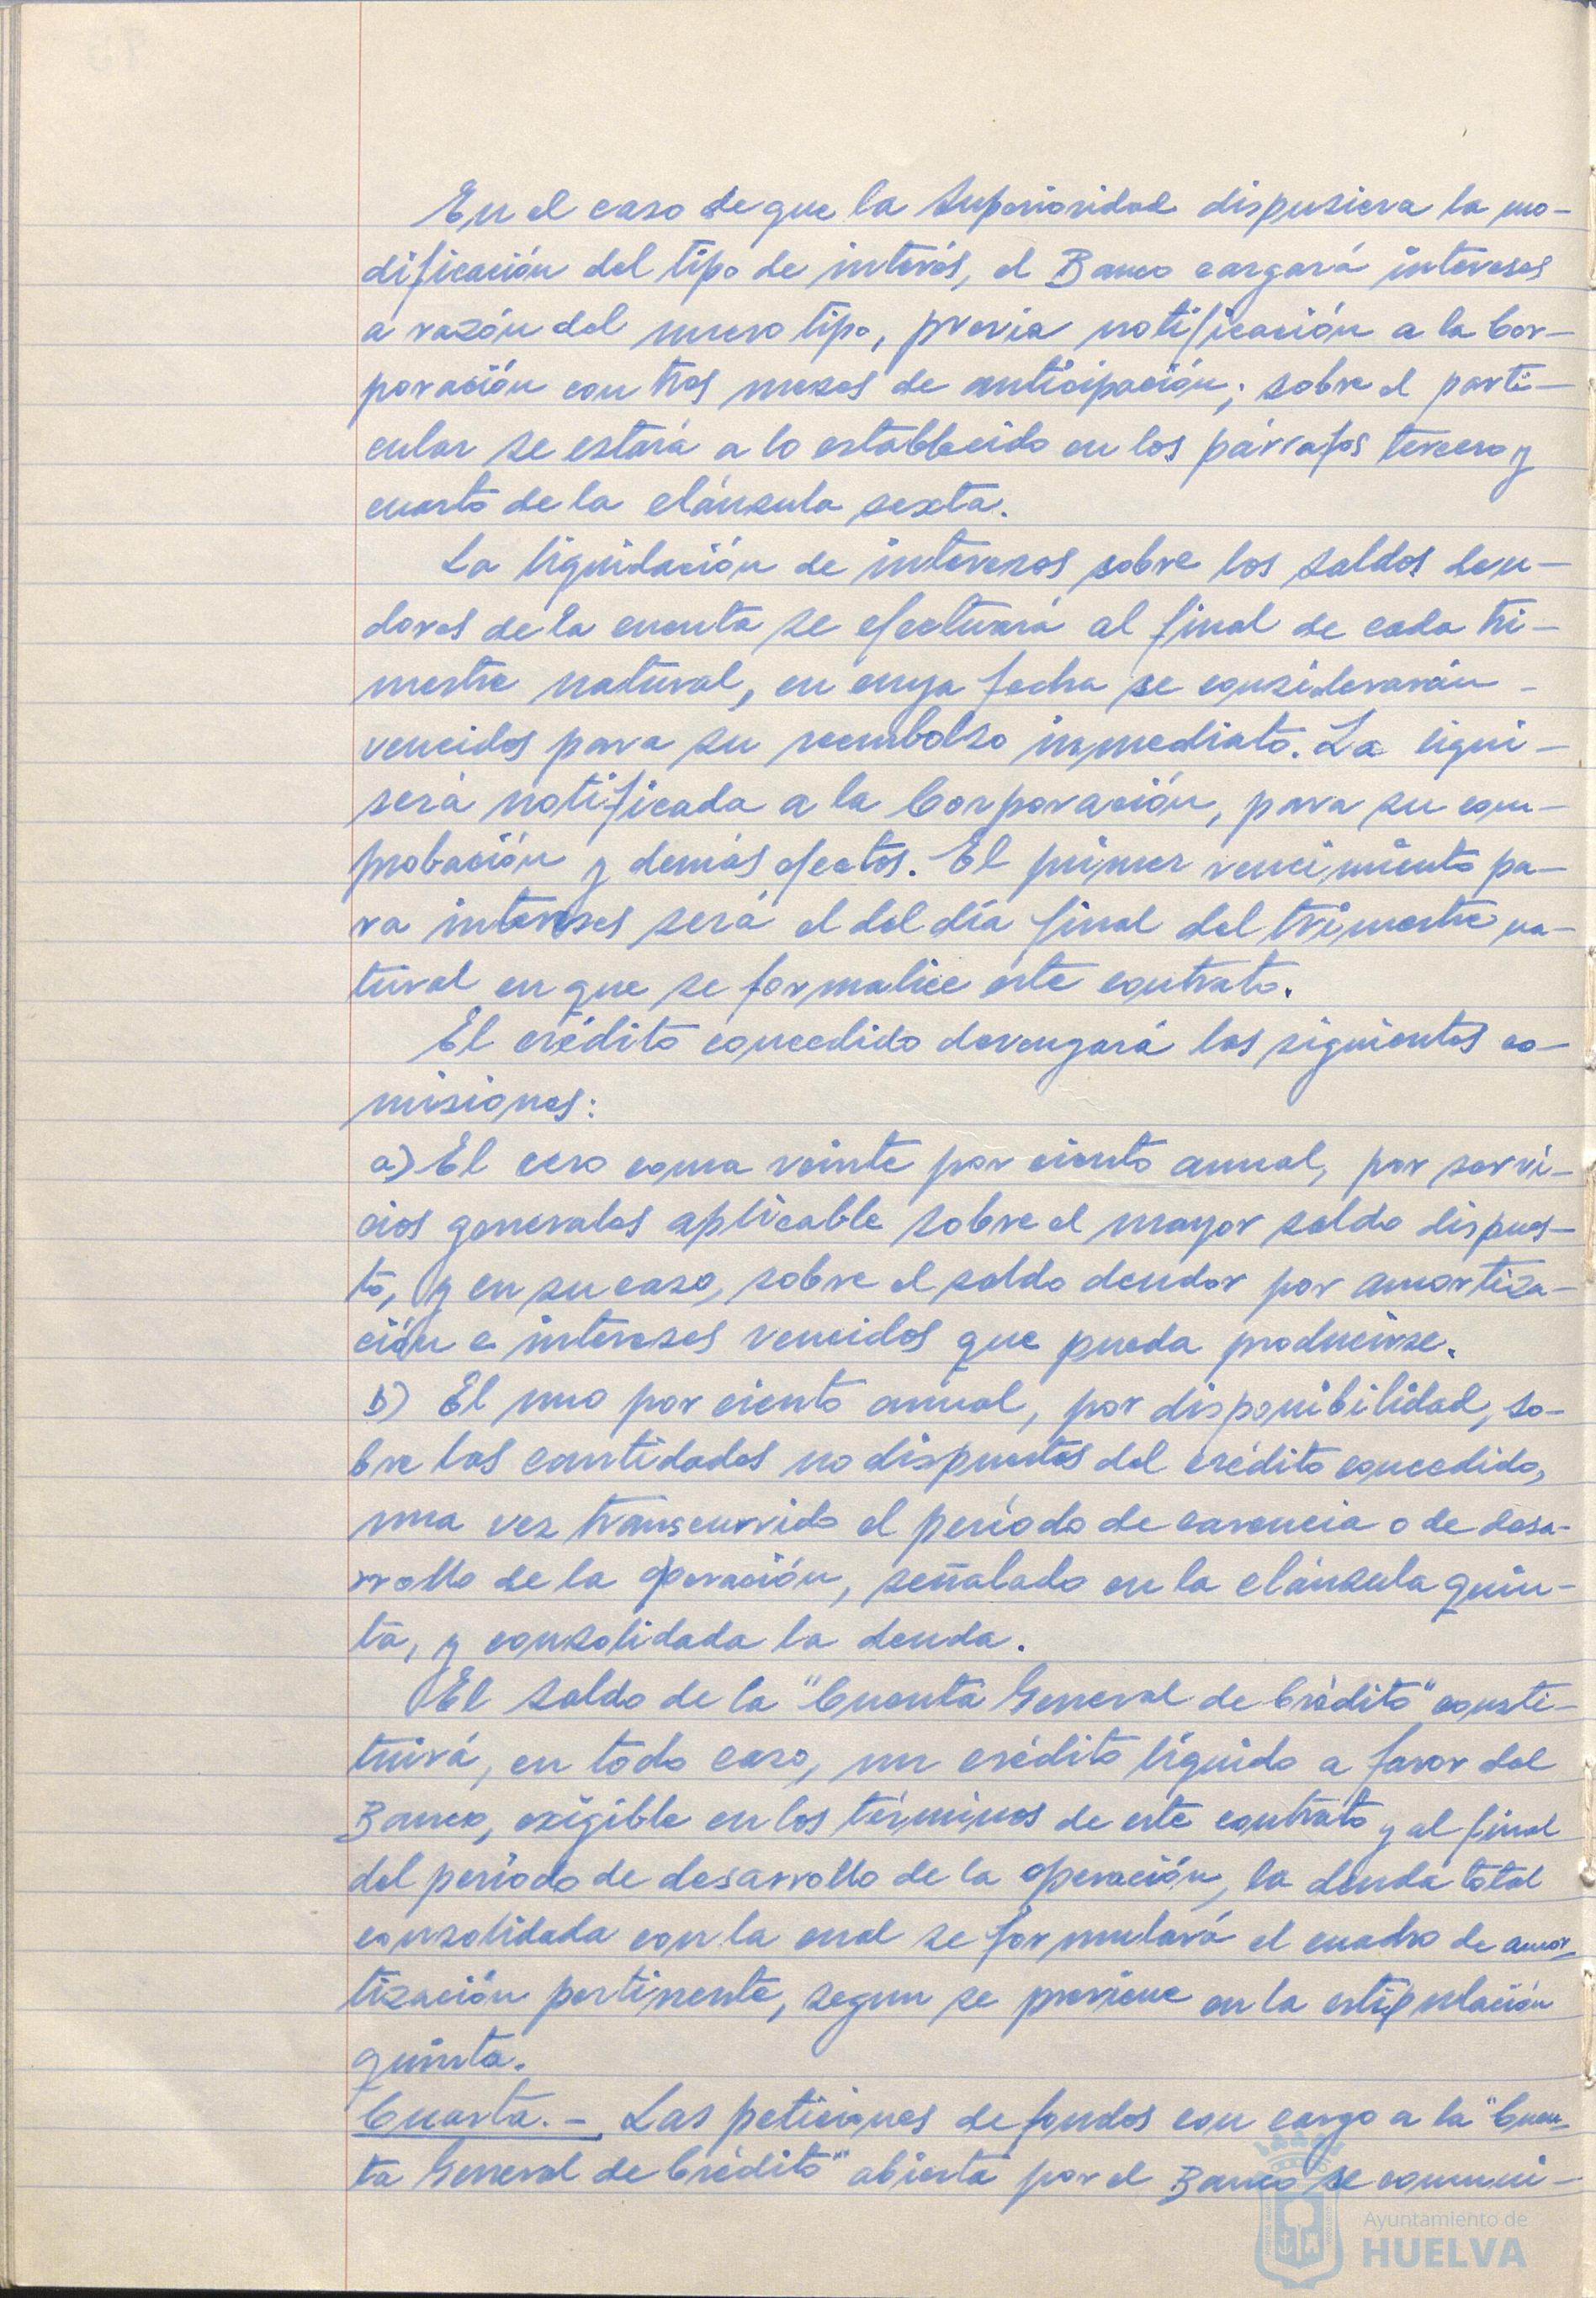 En el caso de que la Superioridad dispusiera la mo-
dificación del tipo de interés, el Banco cargará intereses
a razón del nuevo tipo, previa notificación a la Cor-
poración con tres meses de anticipación; sobre el parti-
cular se estará a lo establecido en los párrafos tercero y
cuarto de la cláusula sexta.
La liquidación de intereses sobre los saldos deu-
dores de la cuenta se efectuará al final de cada tri-
mestre natural, en cuya fecha se considerarán -
vencidos para su reembolso inmediato. La liqui-
será notificada a la Corporación, para su com-
probación y demás efectos. El primer vencimiento pa-
ra intereses será el del día final del trimestre na-
tural en que se formalice este contrato.
El crédito concedido devengará las siguientes co-
misiones:
a) El cero coma veinte por ciento anual, por servi-
cios generales aplicable sobre el mayor saldo dispues-
to, y en su caso, sobre el saldo deudor por amortiza-
ción e intereses vencidos que pueda producirse.
b) El uno por ciento anual, por disponibilidad, so-
bre las cantidades no dispuestas del crédito concedido,
una vez transcurrido el período de carencia o de desa-
rrollo de la operación, señalado en la cláusula quin-
ta, y consolidada la deuda.
El saldo de la "Cuenta General de Crédito" consti-
tuirá, en todo caso, un crédito líquido a favor del
Banco, exigible en los términos de este contrato y al final
del período de desarrollo de la operación, la deuda total
consolidada con la cual se formulará el cuadro de amor-
tización pertinente, segun se previene en la estipulación
quinta.
Cuarta.- Las peticiones de fondos con cargo a la "Cuen-
ta General de Crédito" abierta por el Banco se comuni-
Ayuntamiento de
HUELVA